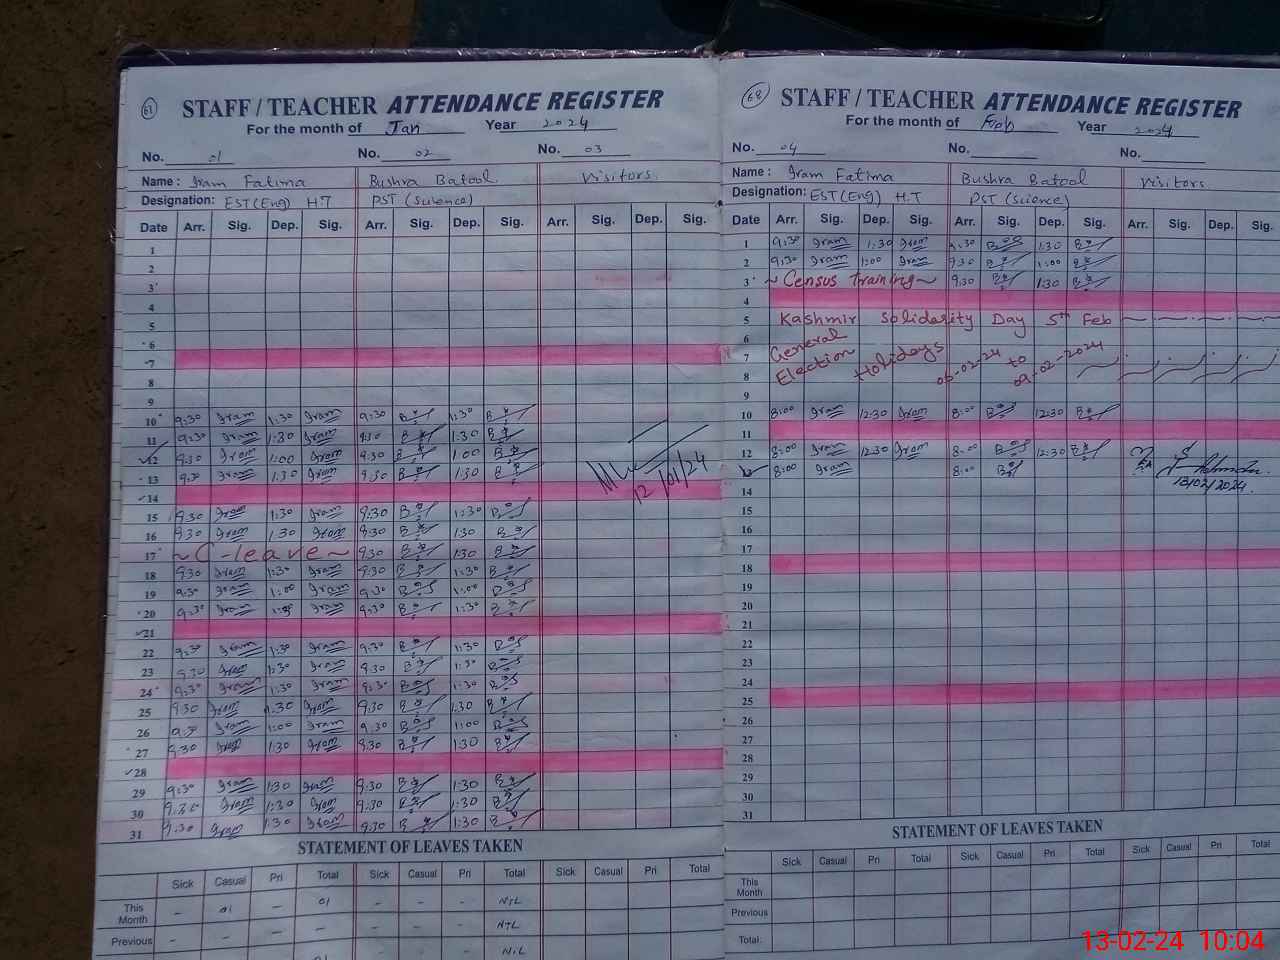 STAFF / TEACHER ATTENDANCE REGISTER
For the month of Jan Year 2024
No. 01 No. 02 No. 03
Name: Iram Fatima Bushra Batool Visitors.
Designation: EST(Eng) H.T PST (Science)
Date Arr. Sig. Dep. Sig. Arr. Sig. Dep. Sig. Arr. Sig. Dep. Sig.
1
2
3
4
5
6
7
8
9
10 9:30 Iram 1:30 Iram 9:30 1:30
11 9:30 Iram 1:30 Iram 9:30 1:30
12 9:30 Iram 1:00 Iram 9:30 1:00
13 9:30 Iram 1:30 Iram 9:30 1:30
12/01/24
14
15 9:30 Iram 1:30 Iram 9:30 1:30
16 9:30 Iram 1:30 Iram 9:30 1:30
17 ~ C-leave ~ 9:30 1:30
18 9:30 Iram 1:30 Iram 9:30 1:30
19 9:30 Iram 1:00 Iram 9:30 1:00
20 9:30 Iram 1:30 Iram 9:30 1:30
21
22 9:30 Iram 1:30 Iram 9:30 1:30
23 9:30 Iram 1:30 Iram 9:30 1:30
24 9:30 Iram 1:30 Iram 9:30 1:30
25 9:30 Iram 1:30 Iram 9:30 1:30
26 9:30 Iram 1:00 Iram 9:30 1:00
27 9:30 Iram 1:30 Iram 9:30 1:30
28
29 9:30 Iram 1:30 Iram 9:30 1:30
30 9:30 Iram 1:30 Iram 9:30 1:30
31 9:30 Iram 1:30 Iram 9:30 1:30
STATEMENT OF LEAVES TAKEN
Sick Casual Pri Total Sick Casual Pri Total Sick Casual Pri Total
This Month - 01 - 01 - - - NIL
Previous - - - - - - NIL
01 NIL
68
STAFF / TEACHER ATTENDANCE REGISTER
For the month of Feb Year 2024
No. 04 No. No.
Name: Iram Fatima Bushra Batool Visitors
Designation: EST(Eng) H.T PST (Science)
Date Arr. Sig. Dep. Sig. Arr. Sig. Dep. Sig. Arr. Sig. Dep. Sig.
1 9:30 Iram 1:30 Iram 9:30 1:30
2 9:30 Iram 1:00 Iram 9:30 1:00
3 ~ Census training ~ 9:30 1:30
4
5 Kashmir Solidarity Day 5th Feb
6 General
7 Election Holidays 06-02-24 to
8 09-02-2024
9
10 8:00 Iram 12:30 Iram 8:00 12:30
11
12 8:00 Iram 12:30 Iram 8:00 12:30
13 8:00 Iram 8:00
13/02/2024.
14
15
16
17
18
19
20
21
22
23
24
25
26
27
28
29
30
31
STATEMENT OF LEAVES TAKEN
Sick Casual Pri Total Sick Casual Pri Total Sick Casual Pri Total
This Month
Previous
Total:
13-02-24 10:04